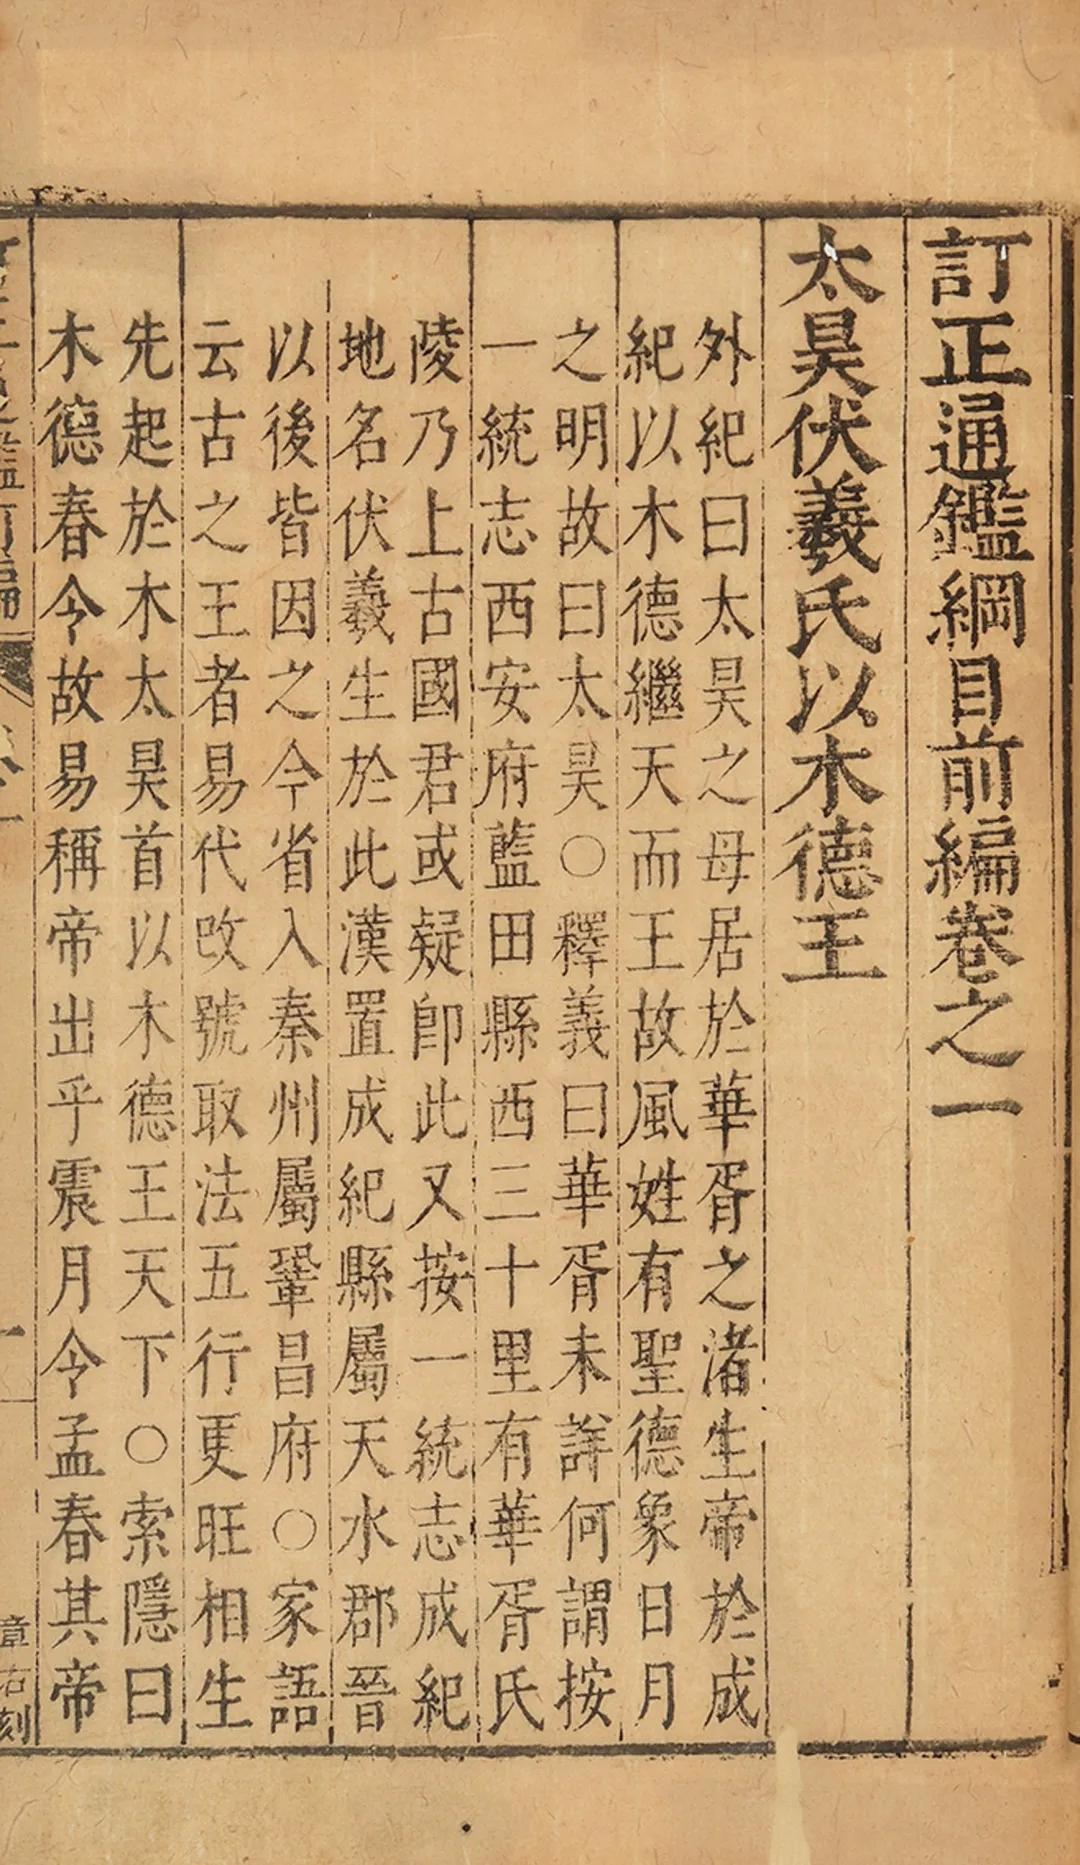 訂正通鑑綱目前編卷之一
太昊伏羲氏以木德王
外紀曰太昊之母居於華胥之渚生帝於成
紀以木德繼天而王故風姓有聖德象日月
之明故曰太昊○釋義曰華胥未詳何謂按
一統志西安府藍田縣西三十里有華胥氏
陵乃上古國君或疑卽此又按一統志成紀
地名伏羲生於此漢置成紀縣屬天水郡晉
以後皆因之今省入秦州屬鞏昌府○家語
云古之王者易代改號取法五行更旺相生
先起於木太昊首以木德王天下○索隱曰
木德春令故易稱帝出乎震月令孟春其帝
章右刻